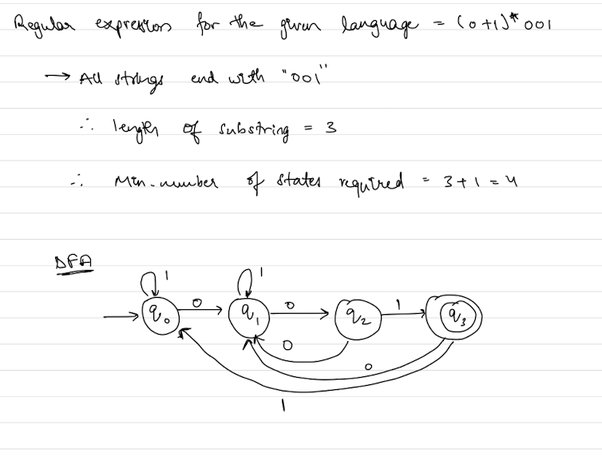 Regular expression for the given language = (0+1)* 001
→ All strings end with "001"
∴ length of substring = 3
∴ Min. number of states required = 3 + 1 = 4
DFA
1 1
q0 0 q1 0 q2 1 q3
0
0
1